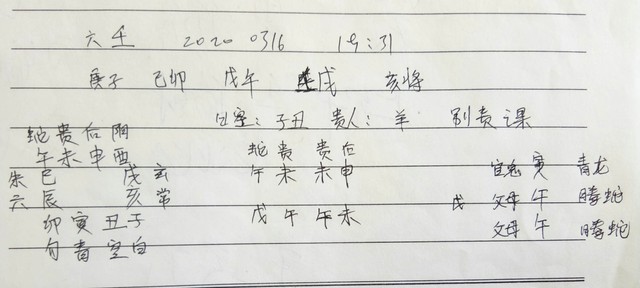 六壬 2020 0316 19:31
庚子 己卯 戊午 壬戌 亥将
日空:子丑 贵人:羊 别责课
蛇贵后阴 蛇贵 贵后
午未申酉 午未 未申 官鬼 寅 青龙
朱巳 戌玄
六辰 亥常 戊午 午未 戊 父母 午 腾蛇
卯寅丑子 父母 午 腾蛇
勾青空白